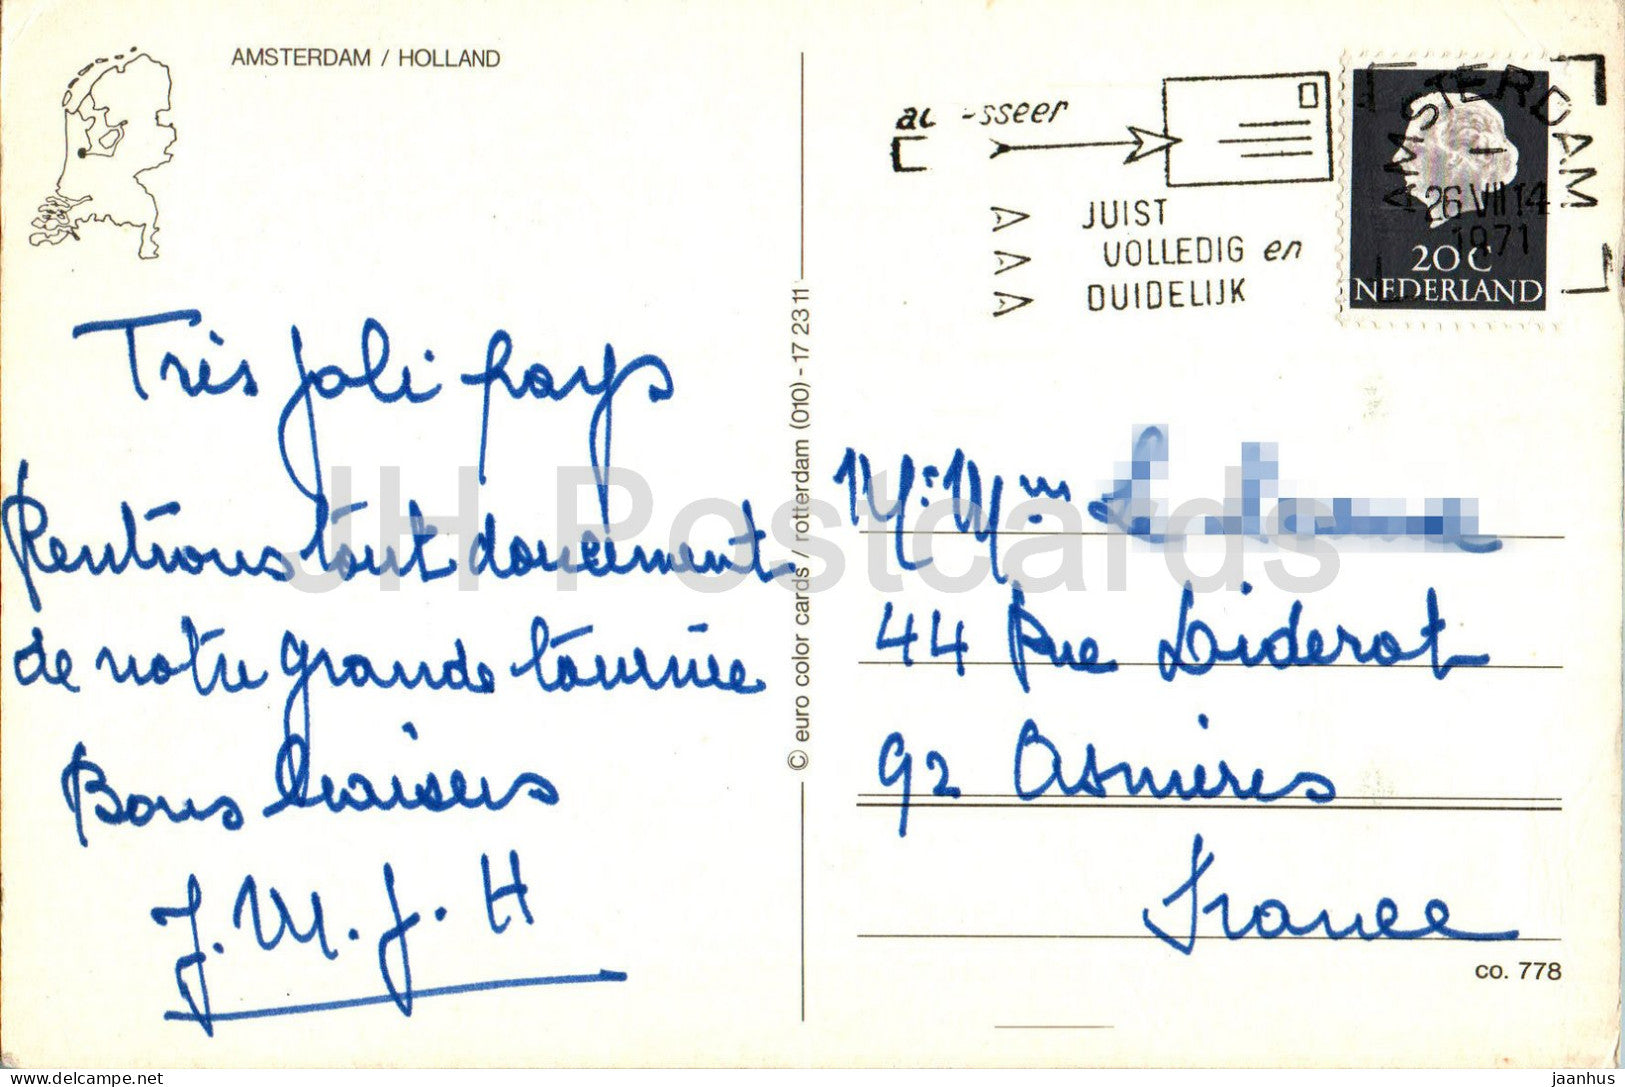 AMSTERDAM / HOLLAND
Très joli pays
Rentrons tout doucement
de notre grande tournée
Bons baisers
J. M. J. H
© euro color cards / rotterdam (010) - 17 23 11
JUIST
VOLLEDIG en
DUIDELIJK
AMSTERDAM
26 VII 14
1971
20 C
NEDERLAND
Mr. Mm
44 Rue Diderot
92 Asnières
France
co. 778
JH Postcards
jaanhus